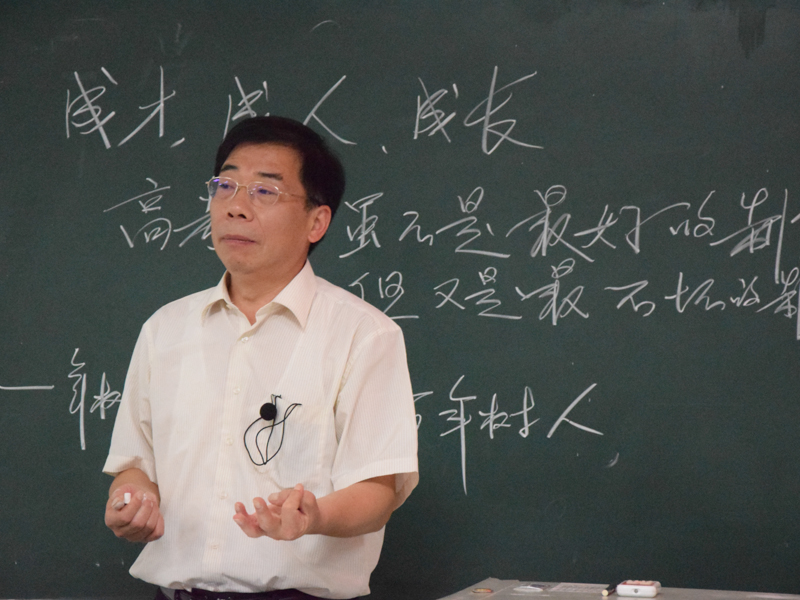 成才、成人、成长
高考虽不是最好的制
但又是最不坏的制
一年树 百年树人